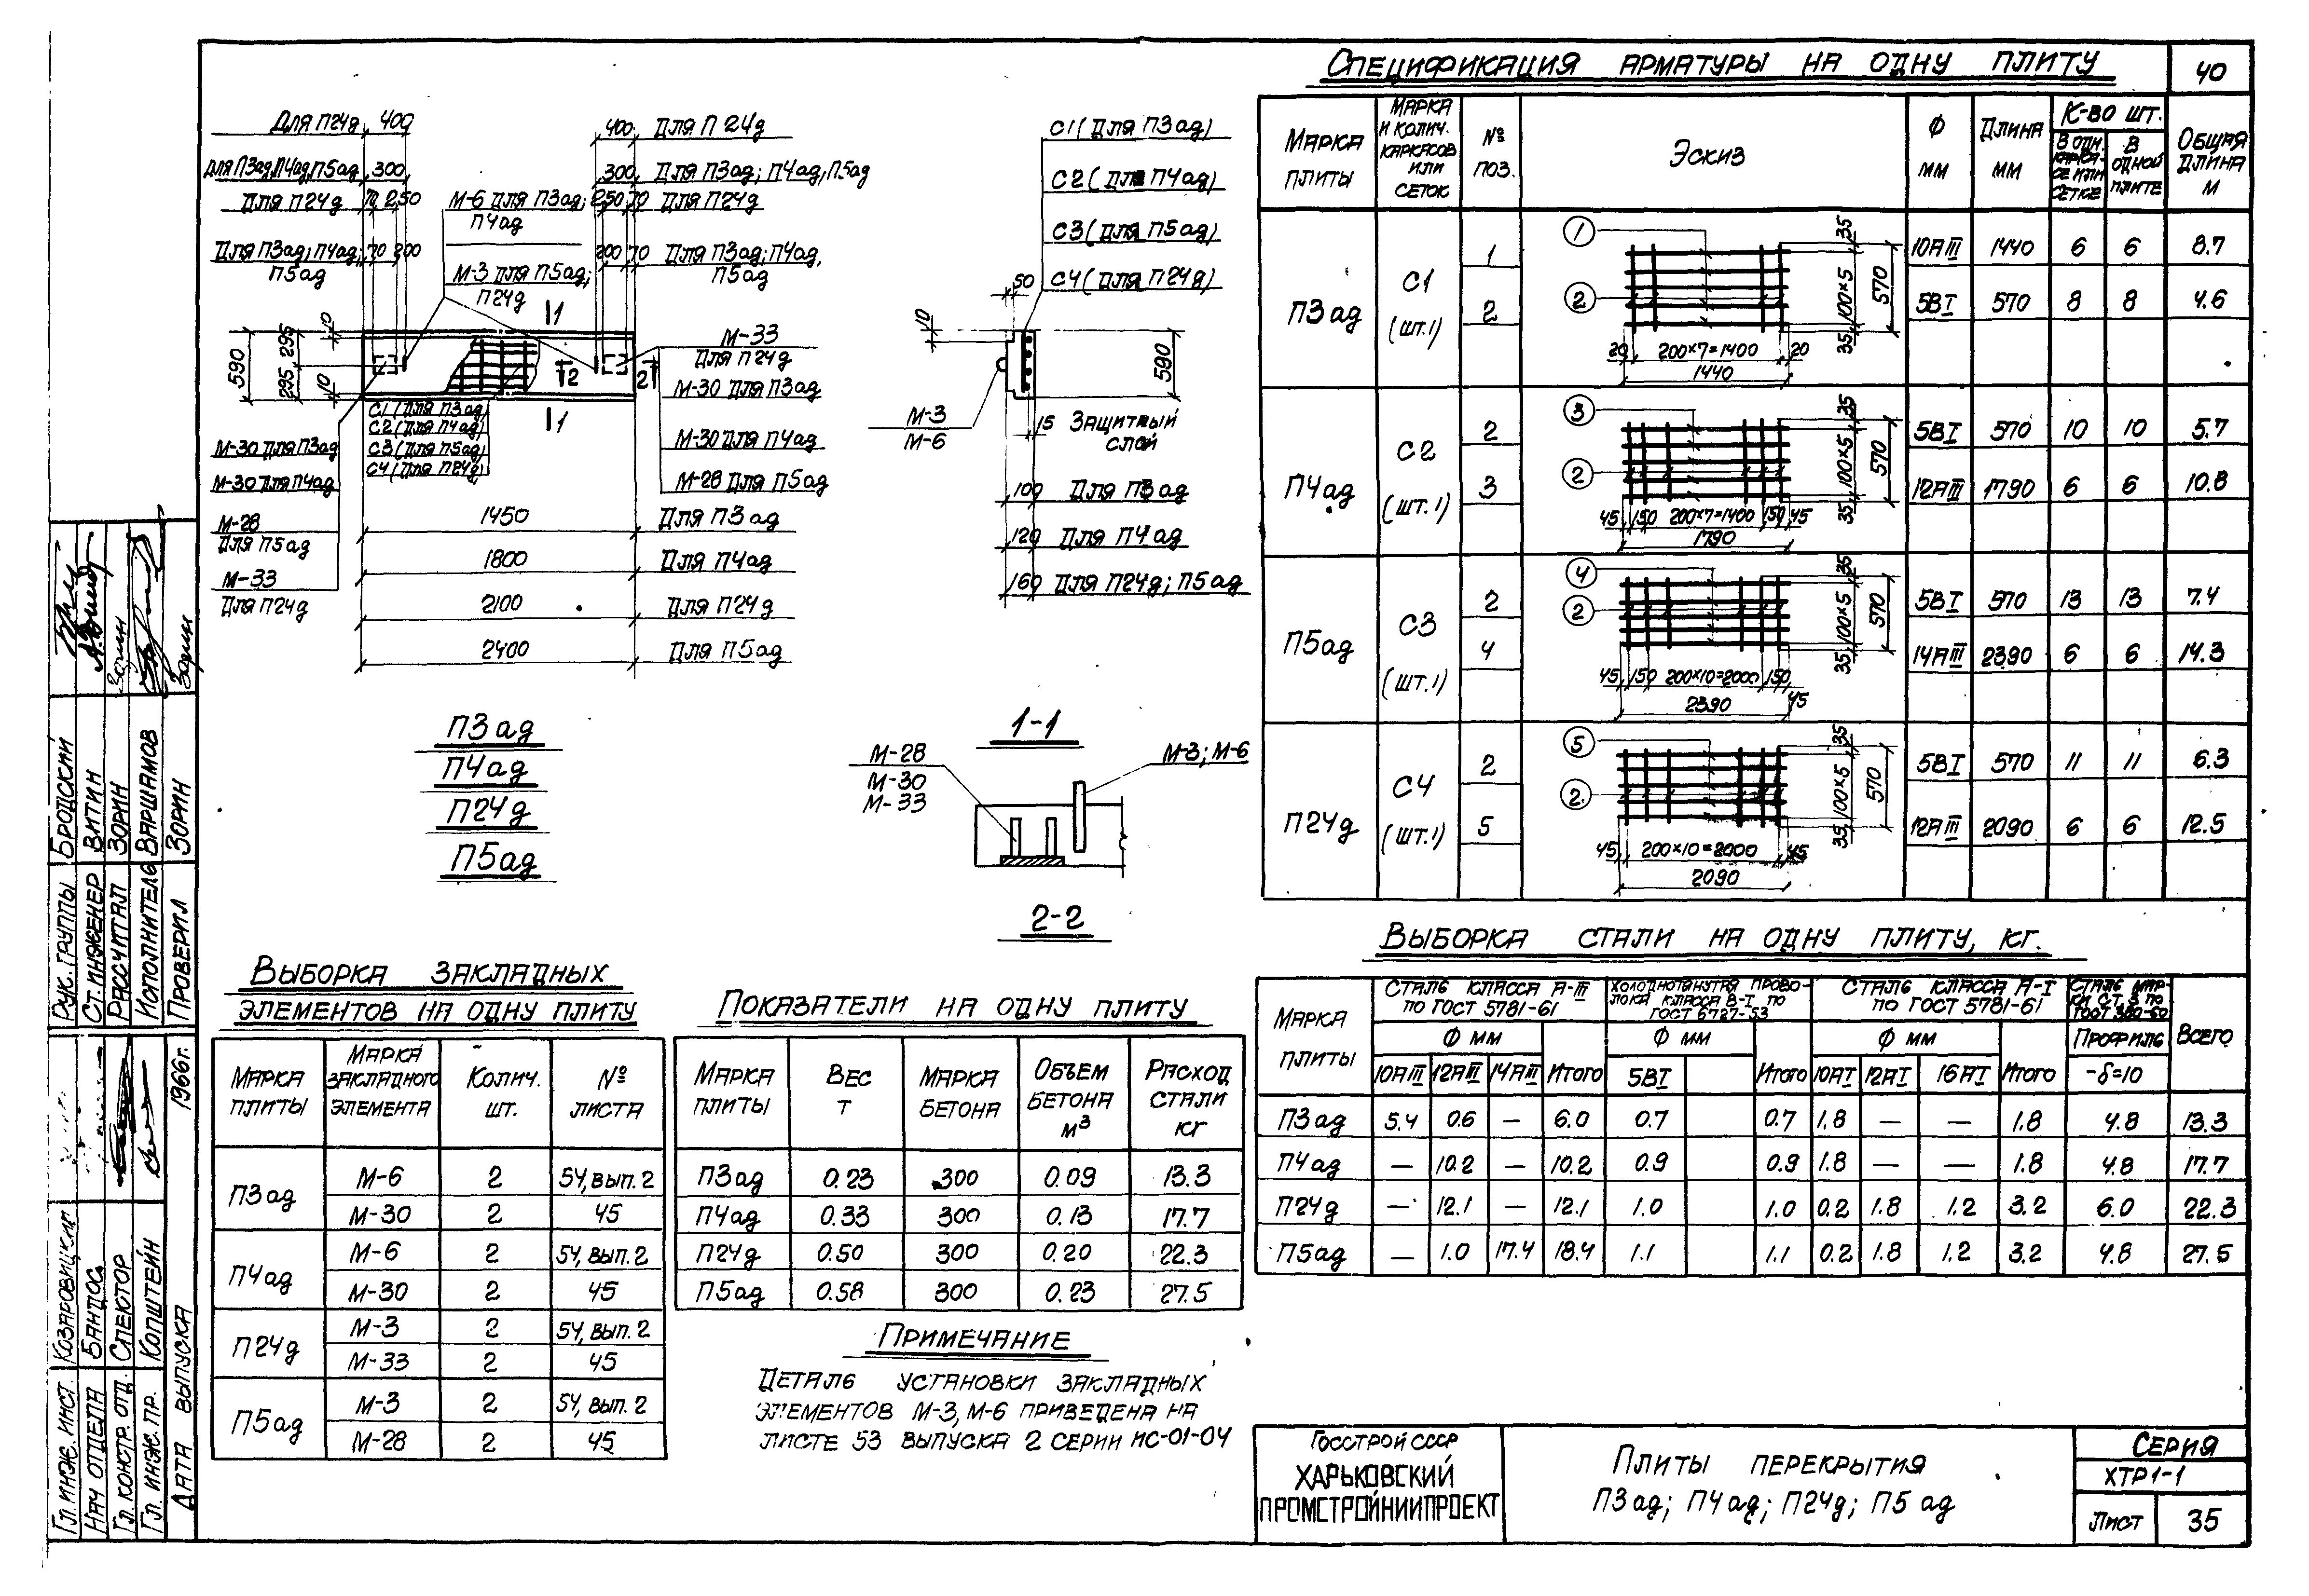 40
Для П24д 400
Для П3ад,П4ад,П5ад 300
Для П24д 70 250
Для П3ад; П4ад; 70 200
П5ад
400 Для П 24д
300 Для П3ад; П4ад, П5ад
250 70 Для П24д
200 70 Для П3ад; П4ад,
П5ад
М-6 для П3ад;
П4ад
М-3 для П5ад;
П24д
590 295 295 10 10
1 1
2 2
С1 (Для П3ад)
С2 (Для П4ад)
С3 (Для П5ад)
С4 (Для П24д)
М-33
Для П24д
М-30 Для П3ад
М-30 Для П4ад
М-28 Для П5ад
М-30 Для П3ад
М-30 Для П4ад
М-28
Для П5ад
М-33
Для П24д
1450 Для П3ад
1800 Для П4ад
2100 Для П24д
2400 Для П5ад
П3ад
П4ад
П24д
П5ад
С1 (Для П3ад)
С2 (Для П4ад)
С3 (Для П5ад)
С4 (Для П24д)
50
10
590
М-3
М-6
15 Защитный
слой
100 Для П3ад
120 Для П4ад
160 Для П24д; П5ад
1-1
М-28
М-30
М-33
М-3; М-6
2-2
Спецификация арматуры на одну плиту
Марка плиты
Марка и колич. каркасов или сеток
№ поз.
Эскиз
Ф мм
Длина мм
К-во шт.
В одн. каркасе или сетке
В одной плите
Общая длина м
П3ад С1 (шт.1)
1 10АIII 1440 6 6 8.7
2 5ВI 570 8 8 4.6
1 2 35 100×5 35 570
20 200×7=1400 20
1440
П4ад С2 (шт.1)
2 5ВI 570 10 10 5.7
3 12АIII 1790 6 6 10.8
3 2 35 100×5 35 570
45 150 200×7=1400 150 45
1790
П5ад С3 (шт.1)
2 5ВI 570 13 13 7.4
4 14АIII 2390 6 6 14.3
4 2 35 100×5 35 570
45 150 200×10=2000 150 45
2390
П24д С4 (шт.1)
2 5ВI 570 11 11 6.3
5 12АIII 2090 6 6 12.5
5 2 35 100×5 35 570
45 200×10=2000 45
2090
Выборка стали на одну плиту, кг.
Марка плиты
Сталь класса А-III по ГОСТ 5781-61
Холоднотянутая проволока класса В-I по ГОСТ 6727-53
Сталь класса А-I по ГОСТ 5781-61
Сталь марки Ст.3 по ГОСТ 380-60
Всего
Ф мм Ф мм Ф мм Профиль
10АIII 12АIII 14АIII Итого 5ВI Итого 10АI 12АI 16АI Итого -δ=10
П3ад 5.4 0.6 — 6.0 0.7 0.7 1.8 — — 1.8 4.8 13.3
П4ад — 10.2 — 10.2 0.9 0.9 1.8 — — 1.8 4.8 17.7
П24д — 12.1 — 12.1 1.0 1.0 0.2 1.8 1.2 3.2 6.0 22.3
П5ад — 1.0 17.4 18.4 1.1 1.1 0.2 1.8 1.2 3.2 4.8 27.5
Выборка закладных
элементов на одну плиту
Марка плиты
Марка закладного элемента
Колич. шт.
№ листа
П3ад М-6 2 54, вып. 2
М-30 2 45
П4ад М-6 2 54, вып. 2
М-30 2 45
П24д М-3 2 54, вып. 2
М-33 2 45
П5ад М-3 2 54, вып. 2
М-28 2 45
Показатели на одну плиту
Марка плиты
Вес т
Марка бетона
Объем бетона м³
Расход стали кг
П3ад 0.23 300 0.09 13.3
П4ад 0.33 300 0.13 17.7
П24д 0.50 300 0.20 22.3
П5ад 0.58 300 0.23 27.5
Примечание
Деталь установки закладных
элементов М-3, М-6 приведена на
листе 53 выпуска 2 серии ИС-01-04
Госстрой СССР
ХАРЬКОВСКИЙ
ПРОМСТРОЙНИИПРОЕКТ
Плиты перекрытия
П3ад; П4ад; П24д; П5ад
Серия
ХТР1-1
Лист 35
Рук. группы Бродский
Ст. инженер Витин
Рассчитал Зорин
Исполнитель Варшамов
Проверил Зорин
Гл. инж. инст.
Нач отдела
Гл. констр. отд. Спектор
Гл. инж. пр. Копштейн
Дата выпуска 1966г.